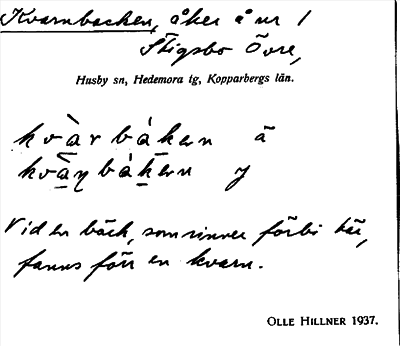 Kvarnbacken, åker å nr 1
Stigsbo Övre,
Husby sn, Hedemora tg, Kopparbergs län.
kvàrbàkern ä
kvàṇbàkern y
Vid en bäck, som rinner förbi här,
fanns förr en kvarn.
OLLE HILLNER 1937.